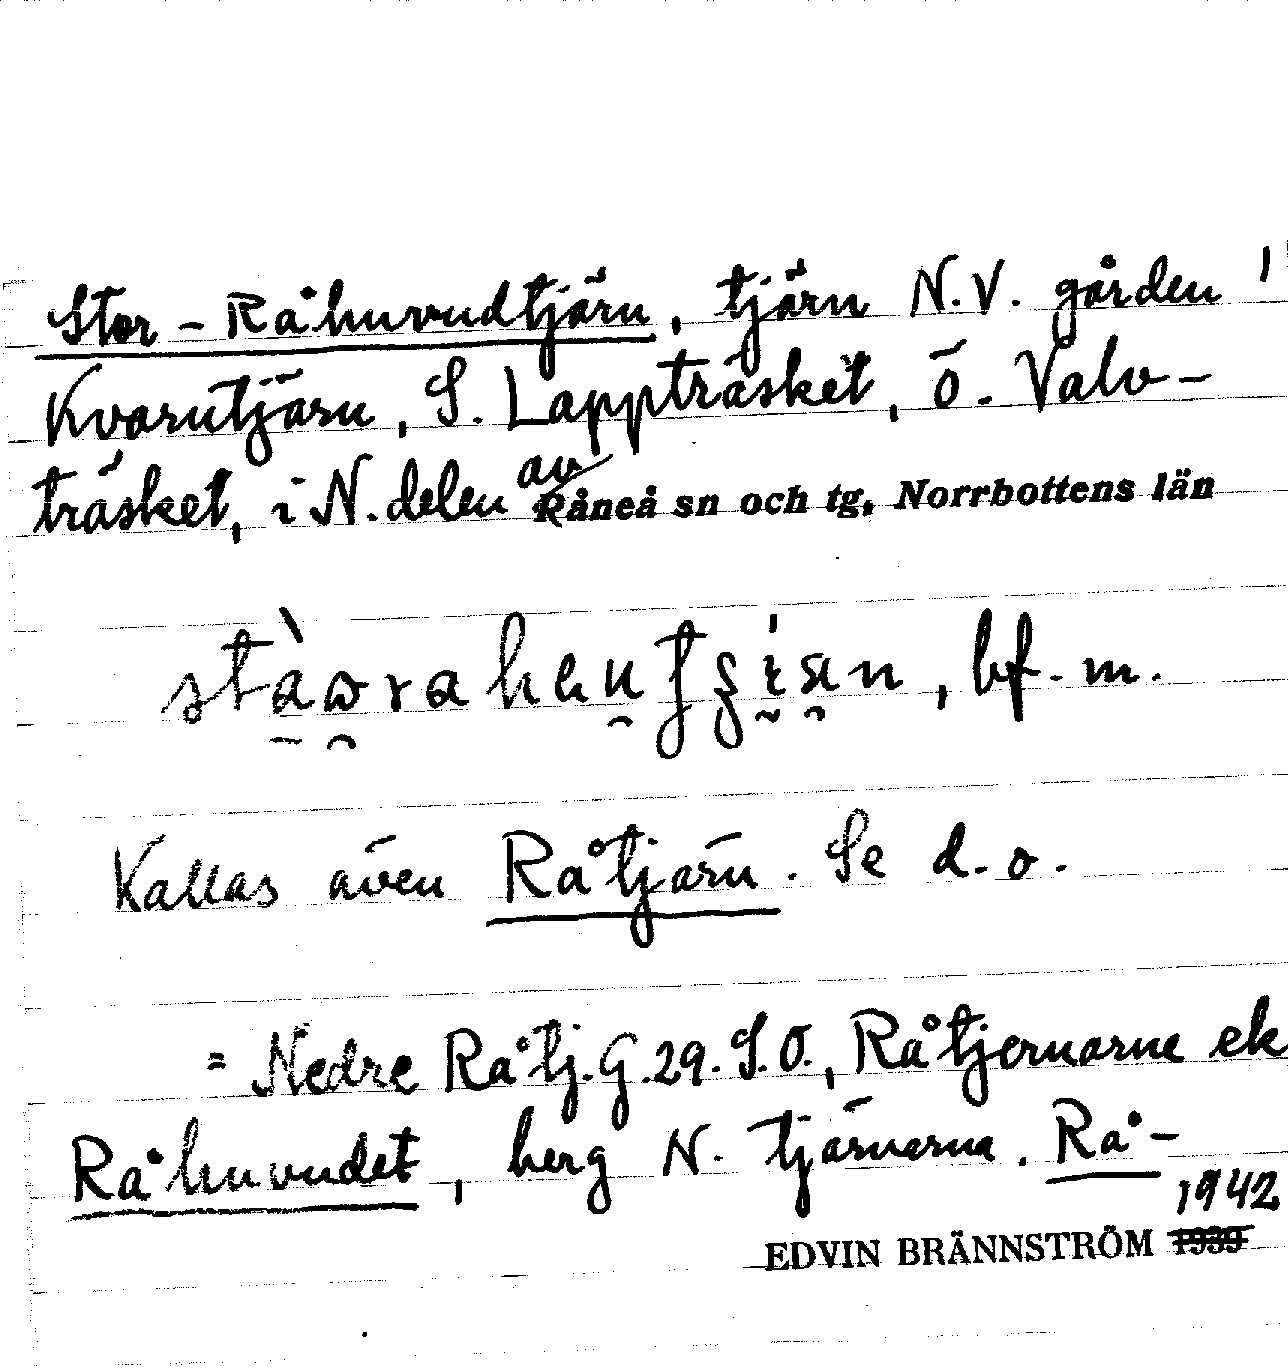 Stor-Råhuvudtjärn, tjärn N.V. gården
Kvarntjärn, S. Lappträsket, ö. Valv-
träsket, i N. delen av Råneå sn och tg, Norrbottens län
bf. m.
Kallas även Råtjärn. Se d. o.
= Nedre Råtj. G. 29. S.O., Råtjernarne ek
Råhuvudet, berg N. tjärnarna. Rå-
1942
EDVIN BRÄNNSTRÖM 1939